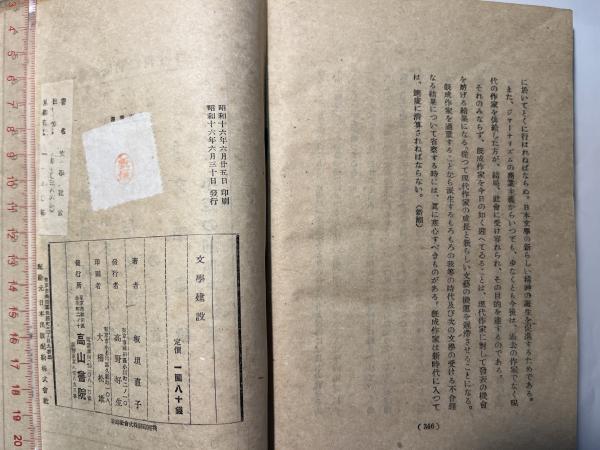 に於いてとくに行はれねばならぬ。日本文學の新らしい精神の誕生を促進するためである。
また、ジャーナリズムの商業主義からいつても、少なくとも今後は、過去の作家でなく現
代の作家を偶像した方が、結局、社會に受け容れられ、その目的を達するのである。
それのみならず、既成作家を今日の如く迎へてゐることは、現代作家に對して發表の機會
を妨げる結果になる。從つて現代作家の成長と新らしい文藝の機運を遲滯させることになる。
既成作家を過重することから派生するもろもろの我等の時代及び次の文學の受ける不合理
なる結果について省察する時には、眞に寒心すべきものがある。既成作家は新時代に入つて
は、嚴肅に清算されねばならない。
(346)
昭和十六年六月廿五日 印刷
昭和十六年六月三十日 發行
文學建設
定價 一圓八十錢
著者 板垣直子
發行者 高野好生
印刷者 大橋松雄
發行所 高山書院
配給元 日本出版配給株式會社